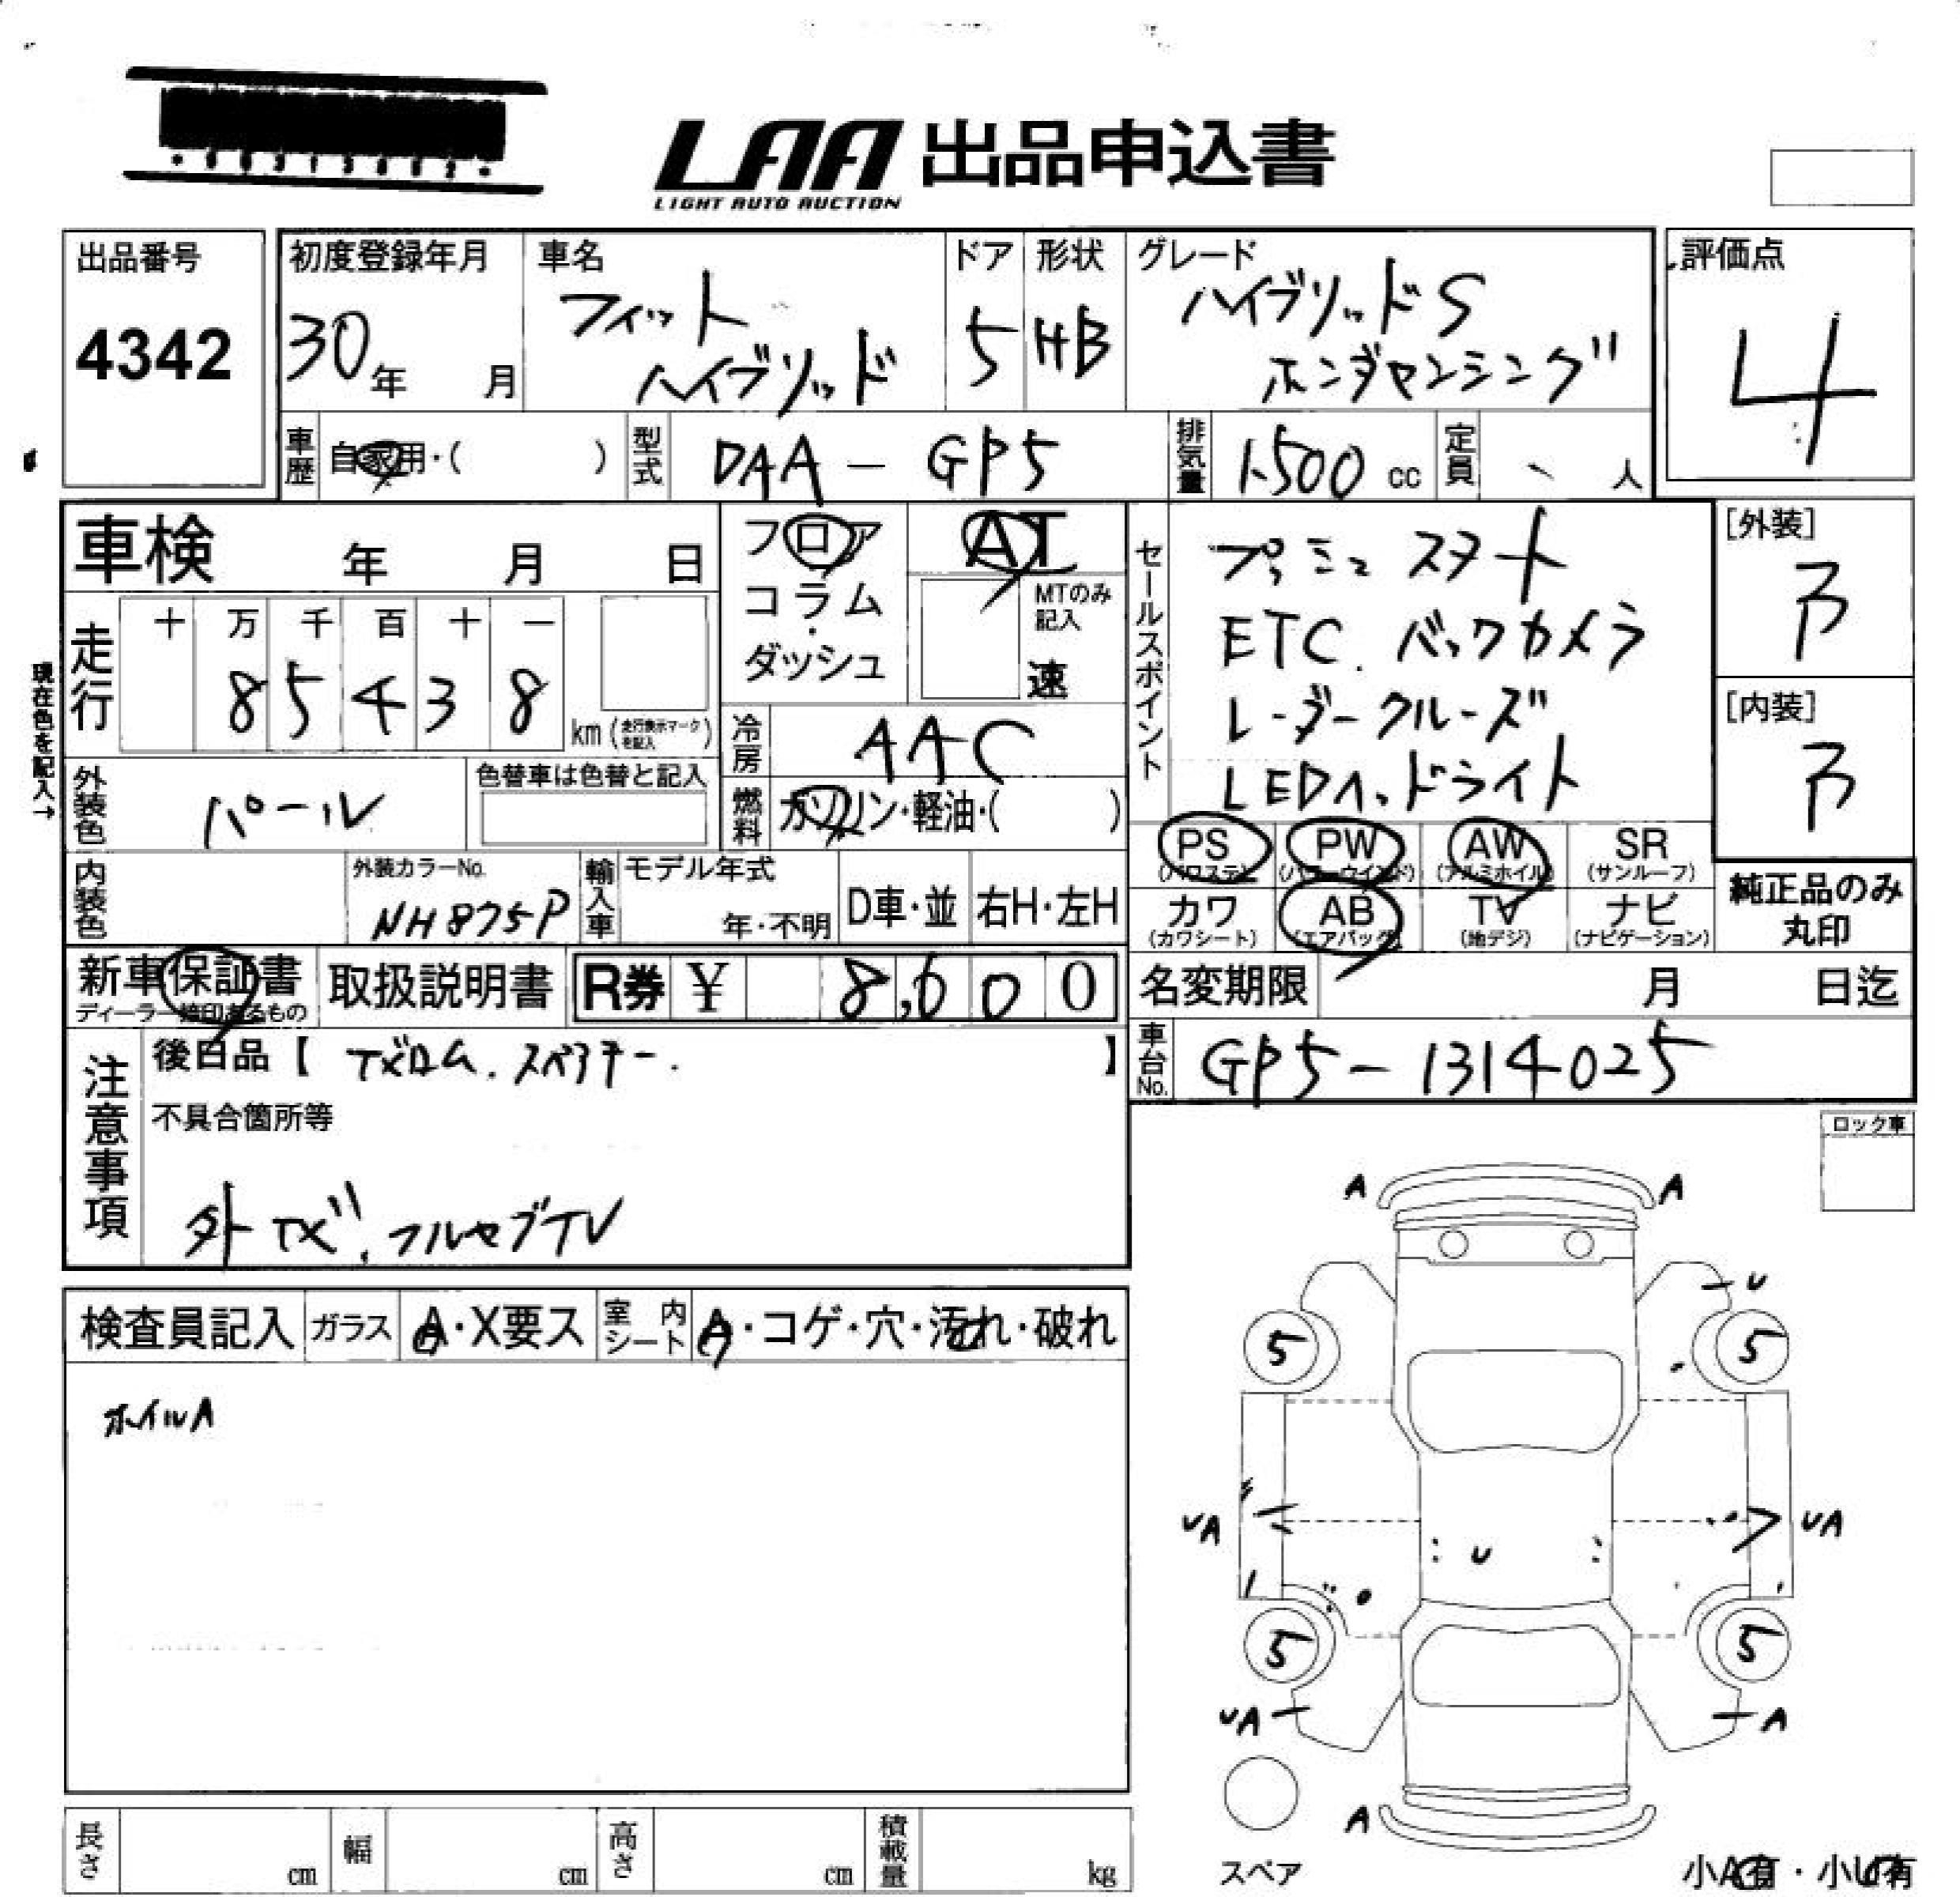 LAA 出品申込書
LIGHT AUTO AUCTION
出品番号
4342
初度登録年月
30年 月
車名
フィット
ハイブリッド
ドア
5
形状
HB
グレード
ハイブリッドS
ホンダセンシング
評価点
4
車歴 自家用・( )
型式 DAA-GP5
排気量 1500 cc
定員 人
車検 年 月 日
フロア
コラム
・
ダッシュ
AT
MTのみ
記入
速
セールスポイント
プッシュスタート
ETC. バックカメラ
レーダークルーズ
LEDヘッドライト
[外装]
B
[内装]
B
現在色を記入→
走行
十 万 千 百 十 一
8 5 4 3 8
km (走行表示マークを記入)
冷房 AAC
外装色 パール
色替車は色替と記入
燃料 ガソリン・軽油・( )
PS (パワステ)
PW (パワーウインド)
AW (アルミホイル)
SR (サンルーフ)
カワ (カワシート)
AB (エアバック)
TV (地デジ)
ナビ (ナビゲーション)
純正品のみ
丸印
内装色
外装カラーNo.
NH875P
輸入車
モデル年式
年・不明
D車・並
右H・左H
新車保証書
ディーラー捺印あるもの
取扱説明書
R券 ¥ 8,600
名変期限 月 日迄
車台No. GP5-1314025
注意事項
後日品【 】
不具合箇所等
フルセグTV
ロック車
検査員記入
ガラス A・X要ス
室内シート A・コゲ・穴・汚れ・破れ
ホイルA
A A
U
5 5
UA UA
U
5 5
UA A
A
スペア
長さ cm
幅 cm
高さ cm
積載量 kg
小A有・小U有